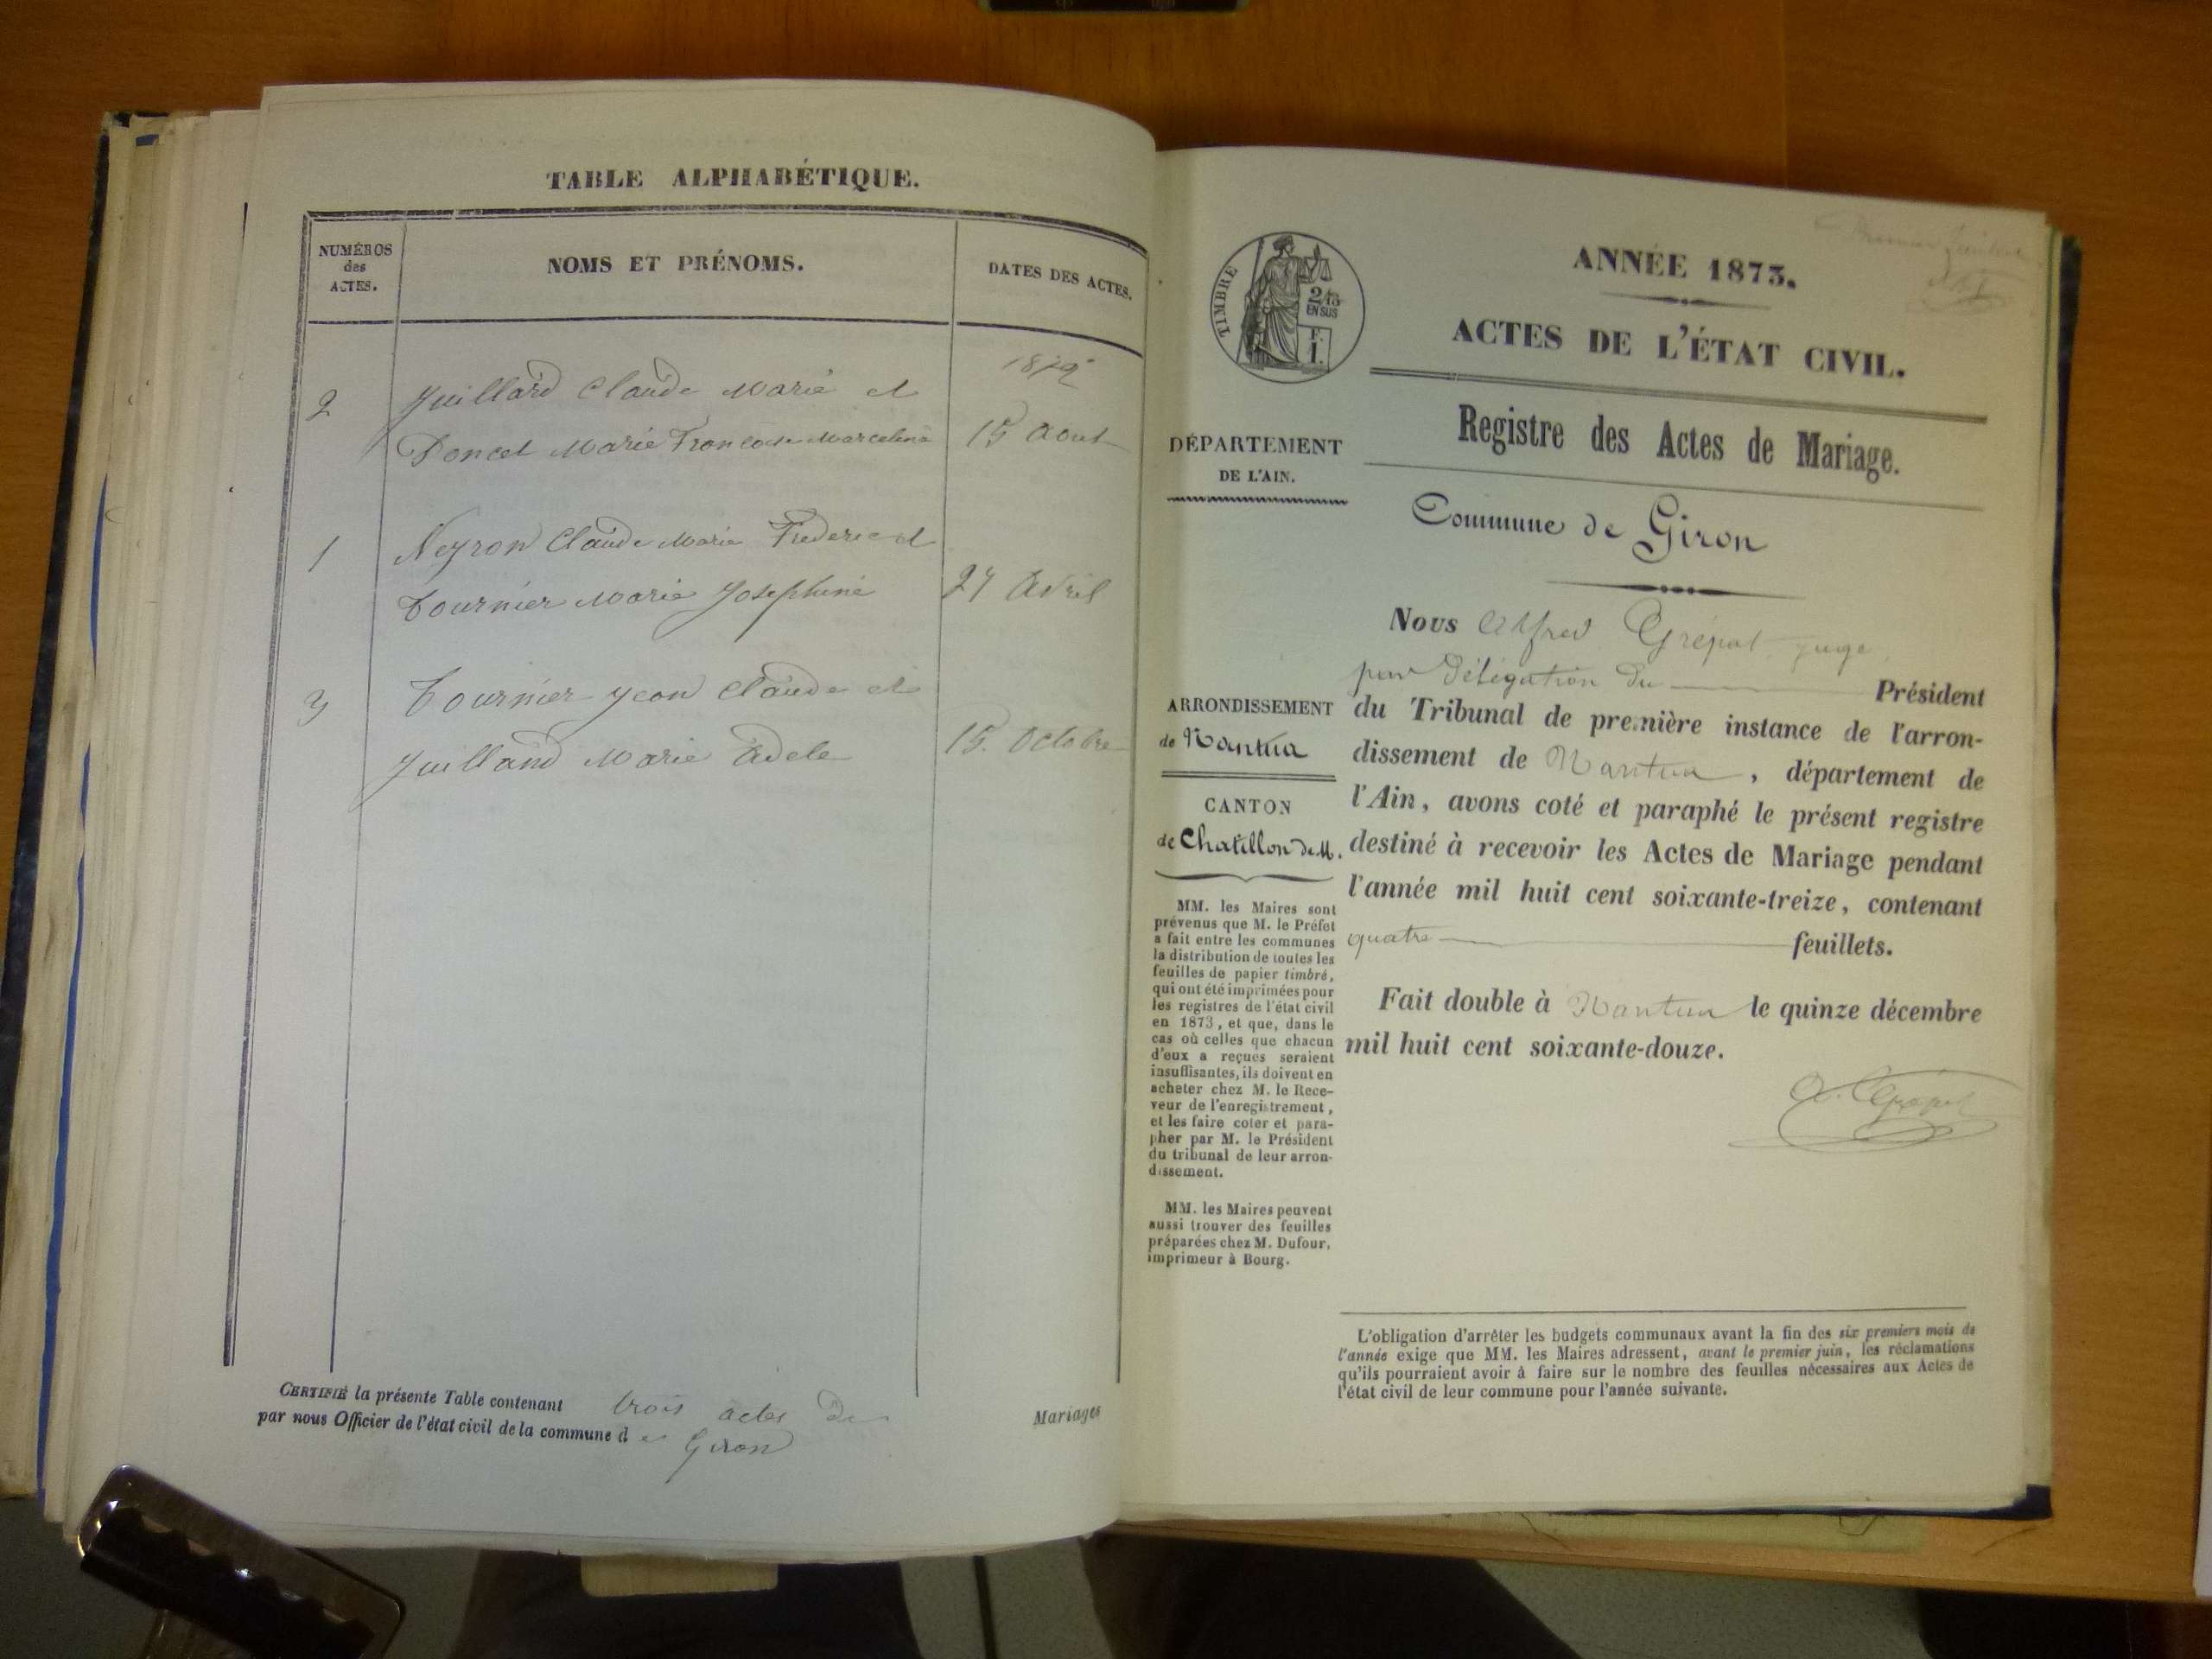 TABLE ALPHABÉTIQUE.
NUMÉROS
des
ACTES.
NOMS ET PRÉNOMS.
DATES DES ACTES.
1872
2 Juillard Claude Marie et
Poncet Marie Françoise Marceline 15 Aout
1 Neyron Claude Marie Frederic et
Tournier Marie Josephine 27 Avril
3 Tournier Jean Claude et
Juilland Marie Adele 15. Octobre
CERTIFIÉ la présente Table contenant trois actes de Mariages
par nous Officier de l'état civil de la commune de Giron
Premier feuillet
TIMBRE
2/10
EN SUS
F.
1.
ANNÉE 1873.
ACTES DE L'ÉTAT CIVIL.
Registre des Actes de Mariage.
DÉPARTEMENT
DE L'AIN.
Commune de Giron
ARRONDISSEMENT
de Nantua
CANTON
de Chatillon de M.
MM. les Maires sont
prévenus que M. le Préfet
a fait entre les communes
la distribution de toutes les
feuilles de papier timbré,
qui ont été imprimées pour
les registres de l'état civil
en 1873, et que, dans le
cas où celles que chacun
d'eux a reçues seraient
insuffisantes, ils doivent en
acheter chez M. le Rece-
veur de l'enregistrement,
et les faire coter et para-
pher par M. le Président
du tribunal de leur arron-
dissement.
MM. les Maires peuvent
aussi trouver des feuilles
préparées chez M. Dufour,
imprimeur à Bourg.
Nous Alfred Grépat juge
par Délégation du Président
du Tribunal de première instance de l'arron-
dissement de Nantua, département de
l'Ain, avons coté et paraphé le présent registre
destiné à recevoir les Actes de Mariage pendant
l'année mil huit cent soixante-treize, contenant
quatre feuillets.
Fait double à Nantua le quinze décembre
mil huit cent soixante-douze.
L'obligation d'arrêter les budgets communaux avant la fin des six premiers mois de
l'année exige que MM. les Maires adressent, avant le premier juin, les réclamations
qu'ils pourraient avoir à faire sur le nombre des feuilles nécessaires aux Actes de
l'état civil de leur commune pour l'année suivante.